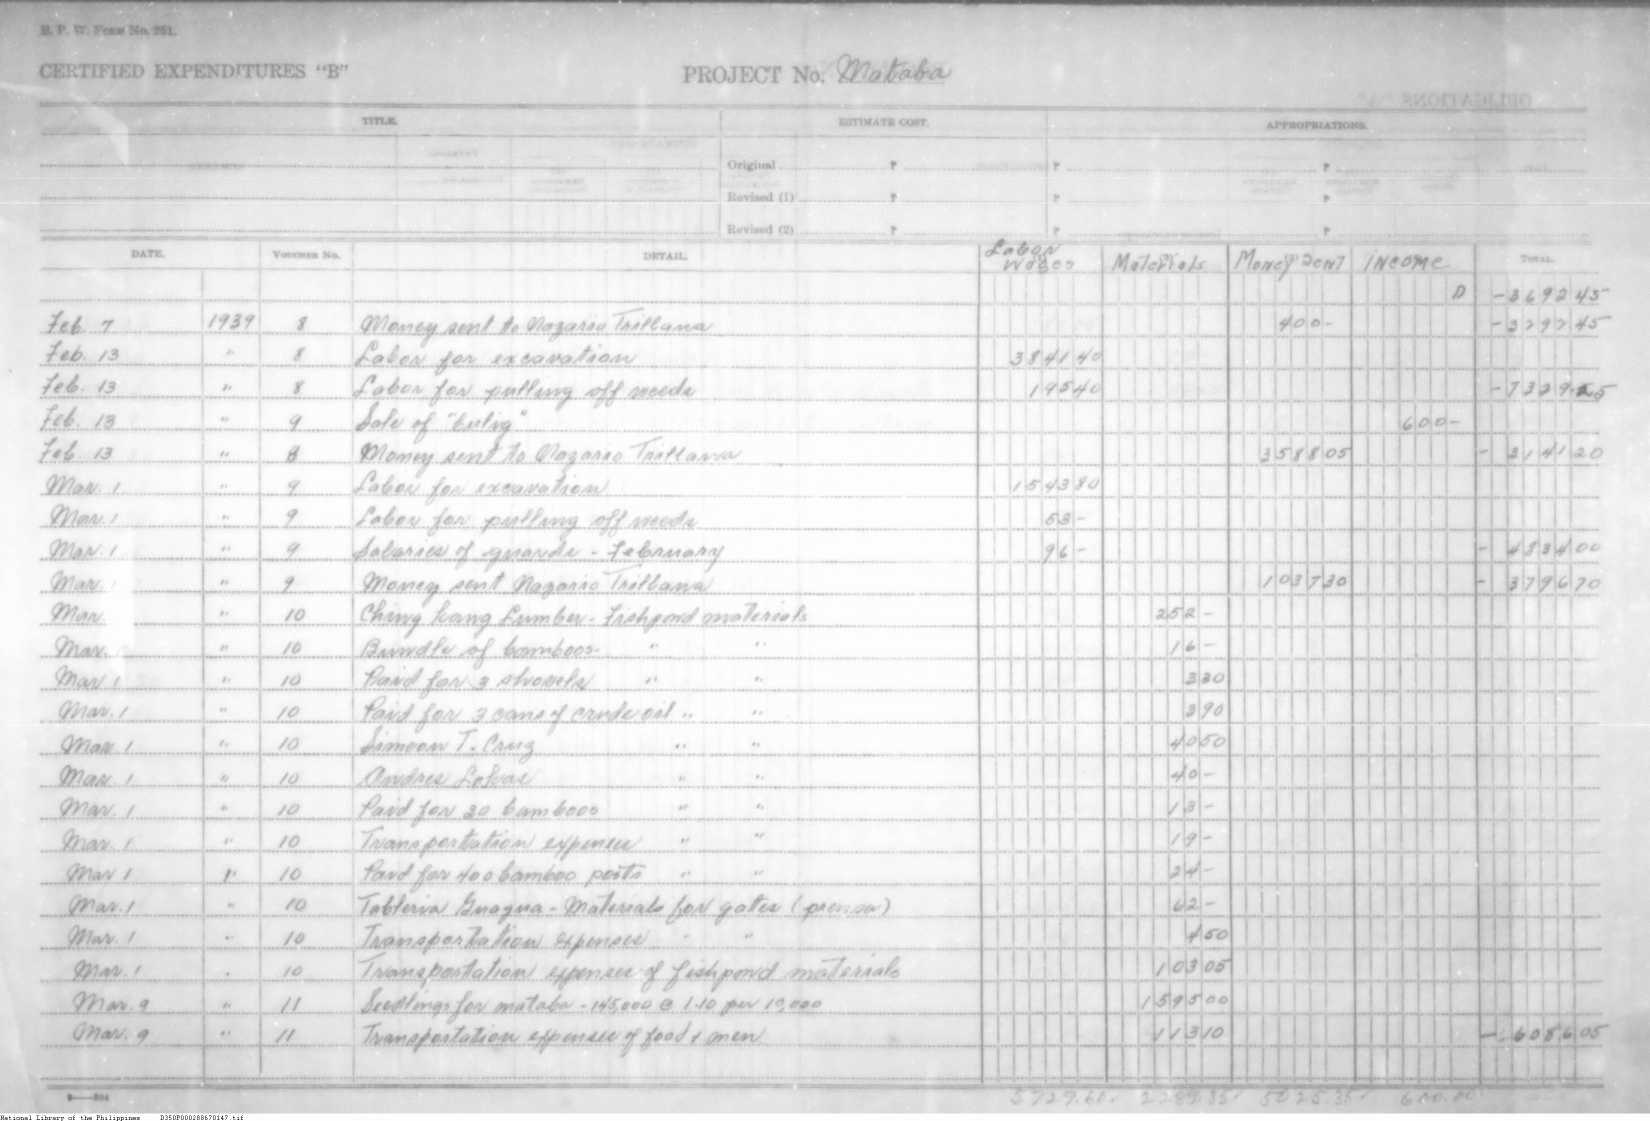 B. P. W. Form No. 251.
CERTIFIED EXPENDITURES "B" PROJECT No. Mataba
OBLIGATIONS
TITLE. ESTIMATE COST. APPROPRIATIONS.
Original ₱ ₱ ₱
Revised (1) ₱ ₱ ₱
Revised (2) ₱ ₱ ₱
DATE. Voucher No. DETAIL. Labor Wages Materials Money Sent INCOME Total.
D -3692 45
Feb. 7 1939 8 Money sent to Nazario Trillana 400- -3292 45
Feb. 13 " 8 Labor for excavation 3841 40
Feb. 13 " 8 Labor for pulling off weeds 195 40 -7329 25
Feb. 13 " 9 Sale of "bulig" 600-
Feb. 13 " 8 Money sent to Nazario Trillana 3588 05 - 3141 20
Mar. 1 " 9 Labor for excavation 1543 80
Mar. 1 " 9 Labor for pulling off weeds 53-
Mar. 1 " 9 Salaries of guards - February 96- - 4834 00
Mar. 1 " 9 Money sent Nazario Trillana 1037 30 - 3796 70
Mar. " 10 Ching Kang Lumber - Fishpond materials 252-
Mar. " 10 Bundle of bamboos " " 16-
Mar 1 " 10 Paid for 3 shovels " " 3 30
Mar. 1 " 10 Paid for 3 cans of crude oil " " 3 90
Mar. 1 " 10 Simeon T. Cruz " " 40 50
Mar. 1 " 10 Andres " " 40-
Mar. 1 " 10 Paid for 30 bamboos " " 13-
Mar. 1 " 10 Transportation expenses " " 19-
Mar 1 " 10 Paid for 400 bamboo posts " " 24-
Mar. 1 " 10 Tableria Guagua - Materials for gates (prensa) 62-
Mar. 1 " 10 Transportation expenses " " 4 50
Mar. 1 " 10 Transportation expenses of fishpond materials 103 05
Mar. 9 " 11 Seedlings for mataba - 145,000 @ 1.10 per 10,000 1595 00
Mar. 9 " 11 Transportation expenses of food & men 113 10 - 6086 05
5729.60 2289.35 5025.35 600.00
National Library of the Philippines D350P000288670147.tif